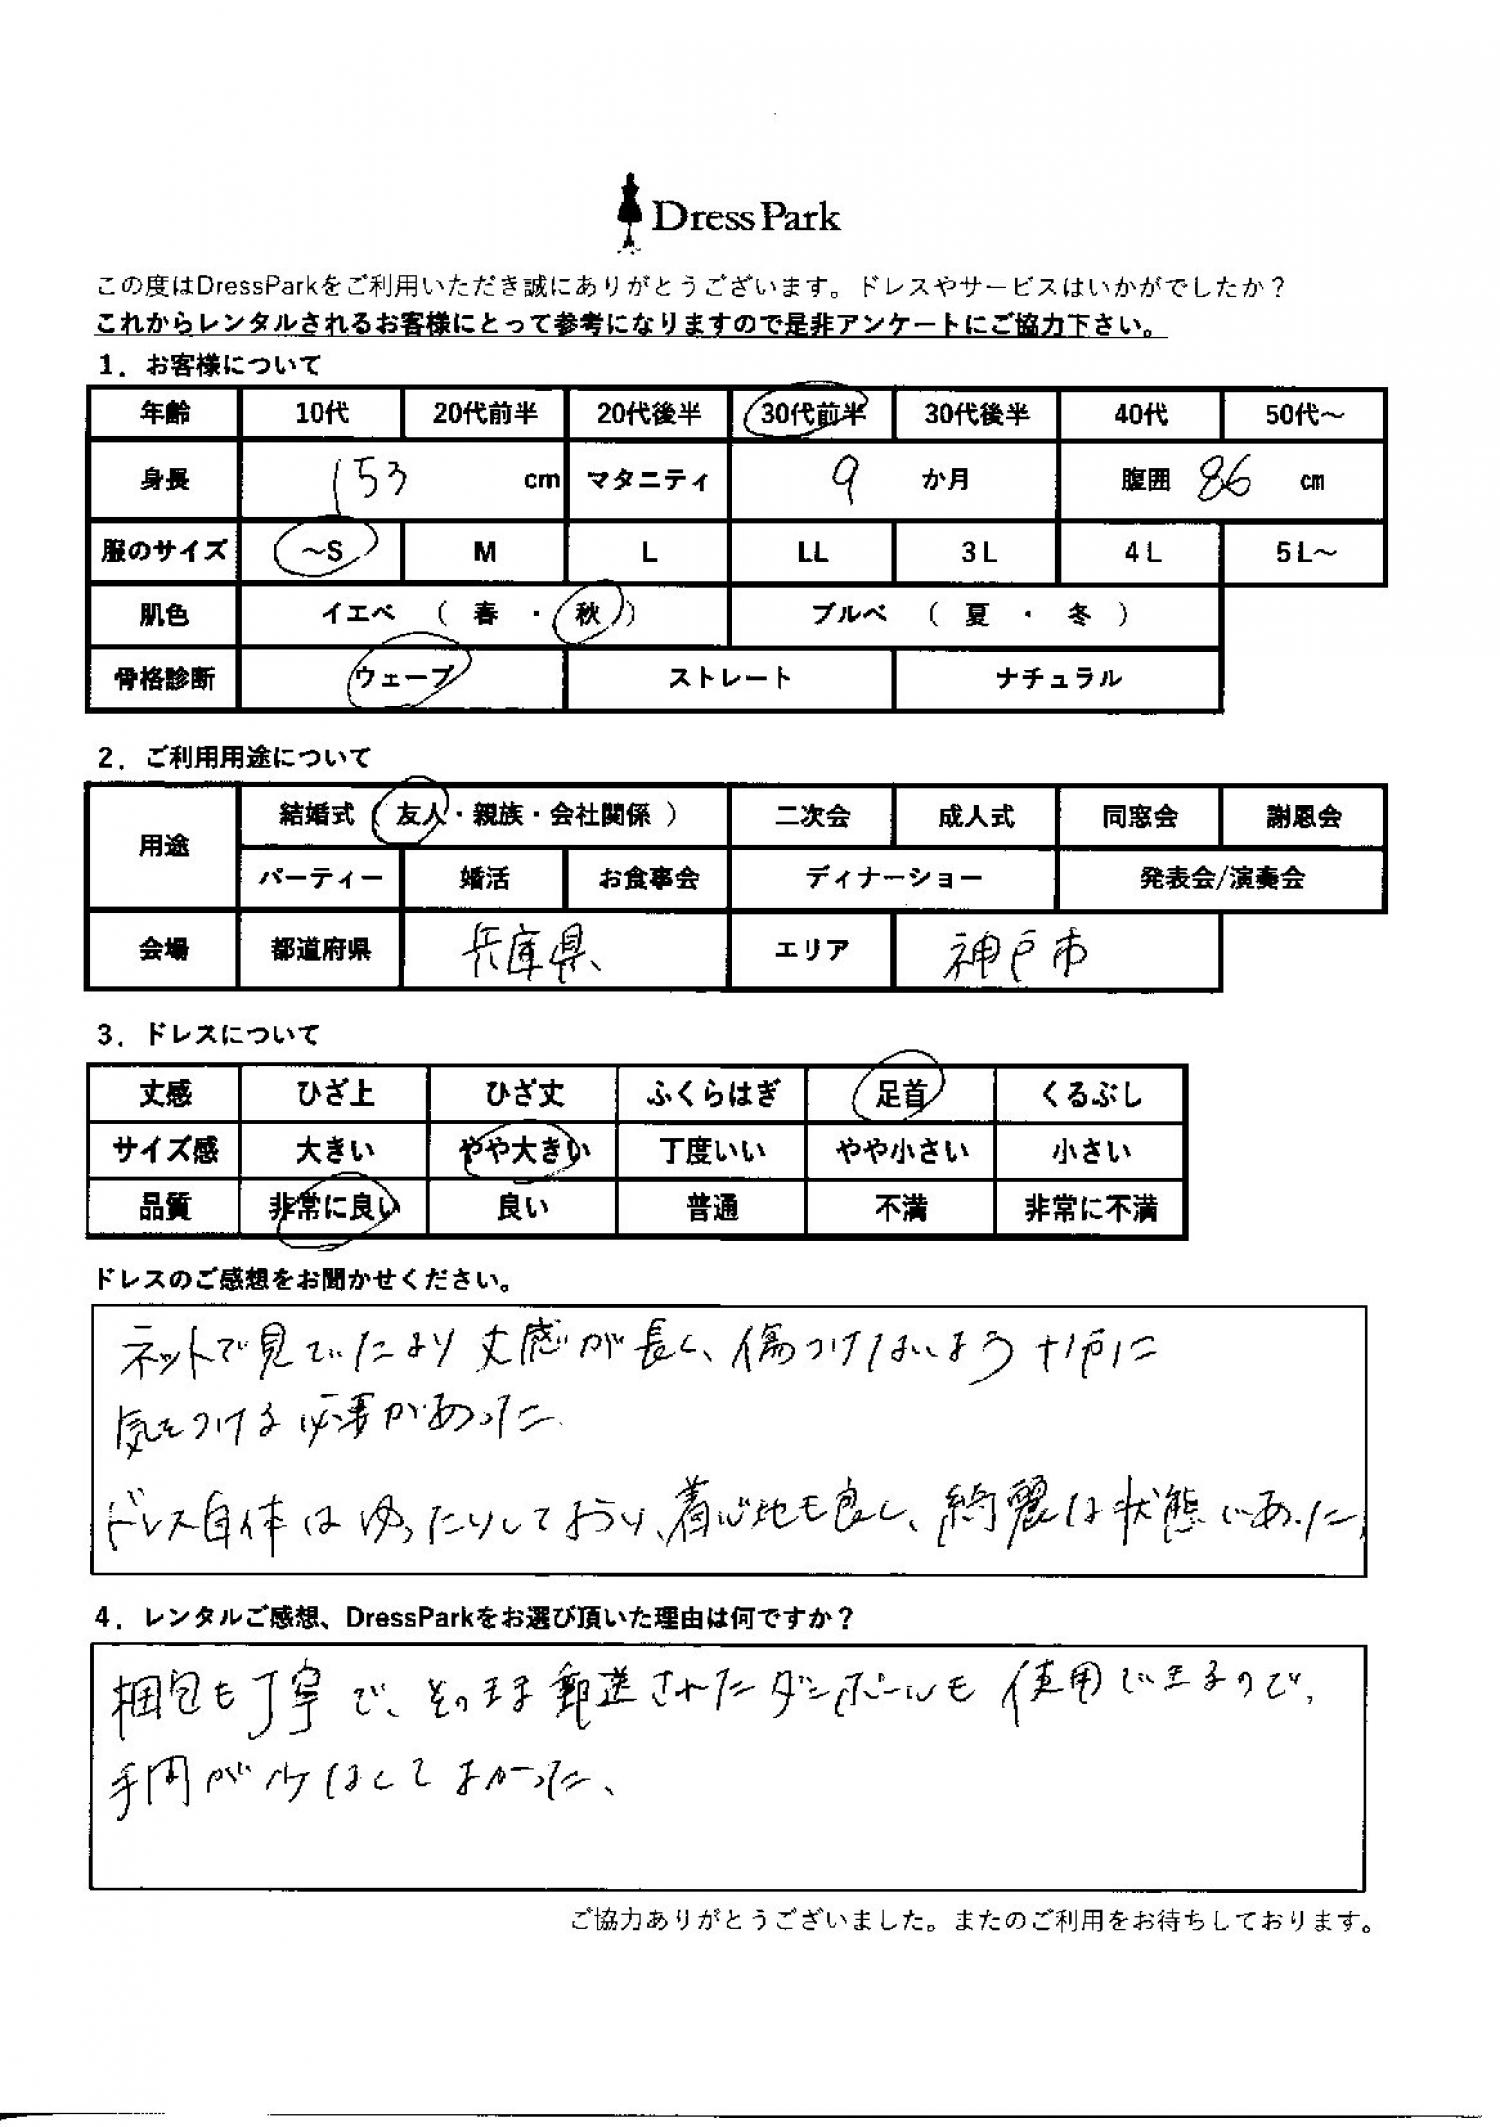 DressPark
この度はDressParkをご利用いただき誠にありがとうございます。ドレスやサービスはいかがでしたか？
これからレンタルされるお客様にとって参考になりますので是非アンケートにご協力下さい。
1．お客様について
年齢 10代 20代前半 20代後半 30代前半 30代後半 40代 50代～
身長 153 cm マタニティ 9 か月 腹囲 86 cm
服のサイズ ～S M L LL 3L 4L 5L～
肌色 イエベ （ 春 ・ 秋 ） ブルベ （ 夏 ・ 冬 ）
骨格診断 ウェーブ ストレート ナチュラル
2．ご利用用途について
用途 結婚式（ 友人・親族・会社関係 ） 二次会 成人式 同窓会 謝恩会
パーティー 婚活 お食事会 ディナーショー 発表会/演奏会
会場 都道府県 兵庫県 エリア 神戸市
3．ドレスについて
丈感 ひざ上 ひざ丈 ふくらはぎ 足首 くるぶし
サイズ感 大きい やや大きい 丁度いい やや小さい 小さい
品質 非常に良い 良い 普通 不満 非常に不満
ドレスのご感想をお聞かせください。
ネットで見ていたより丈感が長く、傷つけないよう に
気をつける必要があった
ドレス自体はゆったりしており、着心地も良く、綺麗な状態であった、
4．レンタルご感想、DressParkをお選び頂いた理由は何ですか？
梱包も丁寧で、そのまま郵送されたダンボールも使用できるので、
手間が少なくてよかった、
ご協力ありがとうございました。またのご利用をお待ちしております。